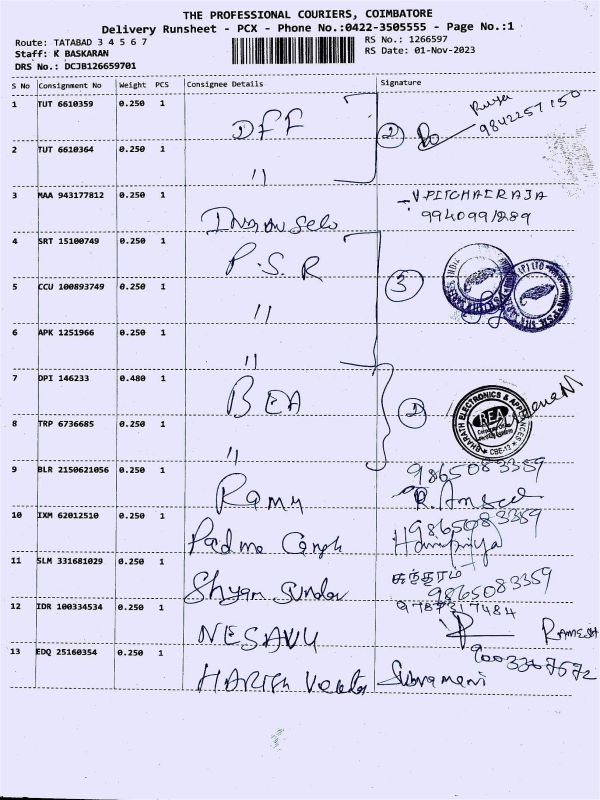 THE PROFESSIONAL COURIERS, COIMBATORE
Delivery Runsheet - PCX - Phone No.:0422-3505555 - Page No.:1
Route: TATABAD 3 4 5 6 7
RS No.: 1266597
Staff: K BASKARAN
RS Date: 01-Nov-2023
DRS No.: DCJB126659701
S No Consignment No Weight PCS Consignee Details Signature
1 TUT 6610359 0.250 1 DFF 2 9842257150
2 TUT 6610364 0.250 1 "
3 MAA 943177812 0.250 1 V.PITCHAIRAJA
4 SRT 15100749 0.250 1 P.S.R
5 CCU 100893749 0.250 1 " 3
6 APK 1251966 0.250 1 "
7 DPI 146233 0.480 1 BEA 2
BHARATH ELECTRONICS & APPLIANCES
BEA
CBE-12
8 TRP 6736685 0.250 1 "
9 BLR 2150621056 0.250 1 Ramu 9865083359
10 IXM 62012510 0.250 1 Padma 9865083359
Haripriya
11 SLM 331681029 0.250 1 Shyam Sundar சுந்தரம்
9865083359
12 IDR 100334534 0.250 1 NESAVU 9787317484
RAMESH
13 EDQ 25160354 0.250 1 HARISH Subramani